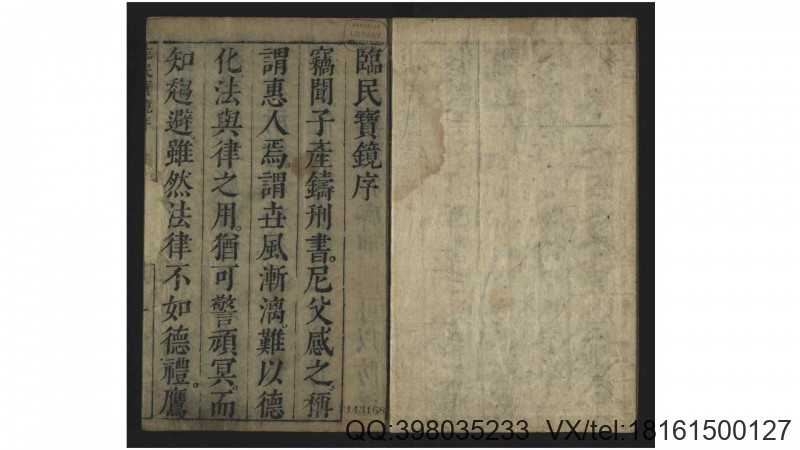 臨民寶鏡序
竊聞子產鑄刑書。尼父感之。稱
謂惠人焉。謂丗風漸漓。難以德
化法與律之用。猶可警頑冥。而
知趨避。雖然法律不如德禮。鷹
143168
QQ:398035233 VX/tel:18161500127